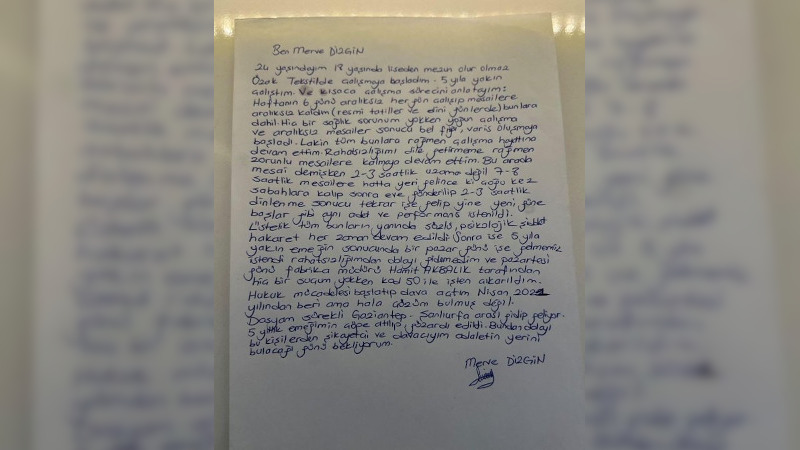 Ben Merve DİZGİN
24 yaşındayım 18 yaşında liseden mezun olur olmaz
Özak Tekstilde çalışmaya başladım. 5 yıla yakın
çalıştım. Ve kısaca çalışma sürecini anlatayım:
Haftanın 6 günü aralıksız her gün çalışıp mesailere
aralıksız kaldım (resmi tatiller ve dini günlerde) bunlara
dahil. Hiç bir sağlık sorunum yokken yoğun çalışma
ve aralıksız mesailer sonucu bel fıtığı, varis oluşmaya
başladı. Lakin tüm bunlara rağmen çalışma hayatına
devam ettim. Rahatsızlığımı dile getirmeme rağmen
zorunlu mesailere kalmaya devam ettim. Bu arada
mesai demişken 2-3 saatlik uzama değil 7-8
saatlik mesailere hatta yeri gelince ki çoğu kez
sabahlara kalıp sonra eve gönderilip 2-3 saatlik
dinlenme sonucu tekrar işe gelip yine yeni güne
başlar gibi aynı adet ve performans istenildi.
Üstelik tüm bunların yanında sözlü, psikolojik şiddet
hakaret her zaman devam edildi. Sonra ise 5 yıla
yakın emeğin sonucunda bir pazar günü işe gelmemiz
istendi rahatsızlığımdan dolayı gidemedim ve pazartesi
günü fabrika müdürü Hamit AKBALIK tarafından
hiç bir suçum yokken kod 50 ile işten çıkarıldım.
Hukuk mücadelesi başlatıp dava açtım Nisan 2021
yılından beri ama hala çözüm bulmuş değil.
Dosyam sürekli Gaziantep - Şanlıurfa arası gidip geliyor.
5 yıllık emeğimin çöpe atılıp, gözardı edildi. Bundan dolayı
bu kişilerden şikayetçi ve davacıyım adaletin yerini
bulacağı günü bekliyorum.
Merve DİZGİN